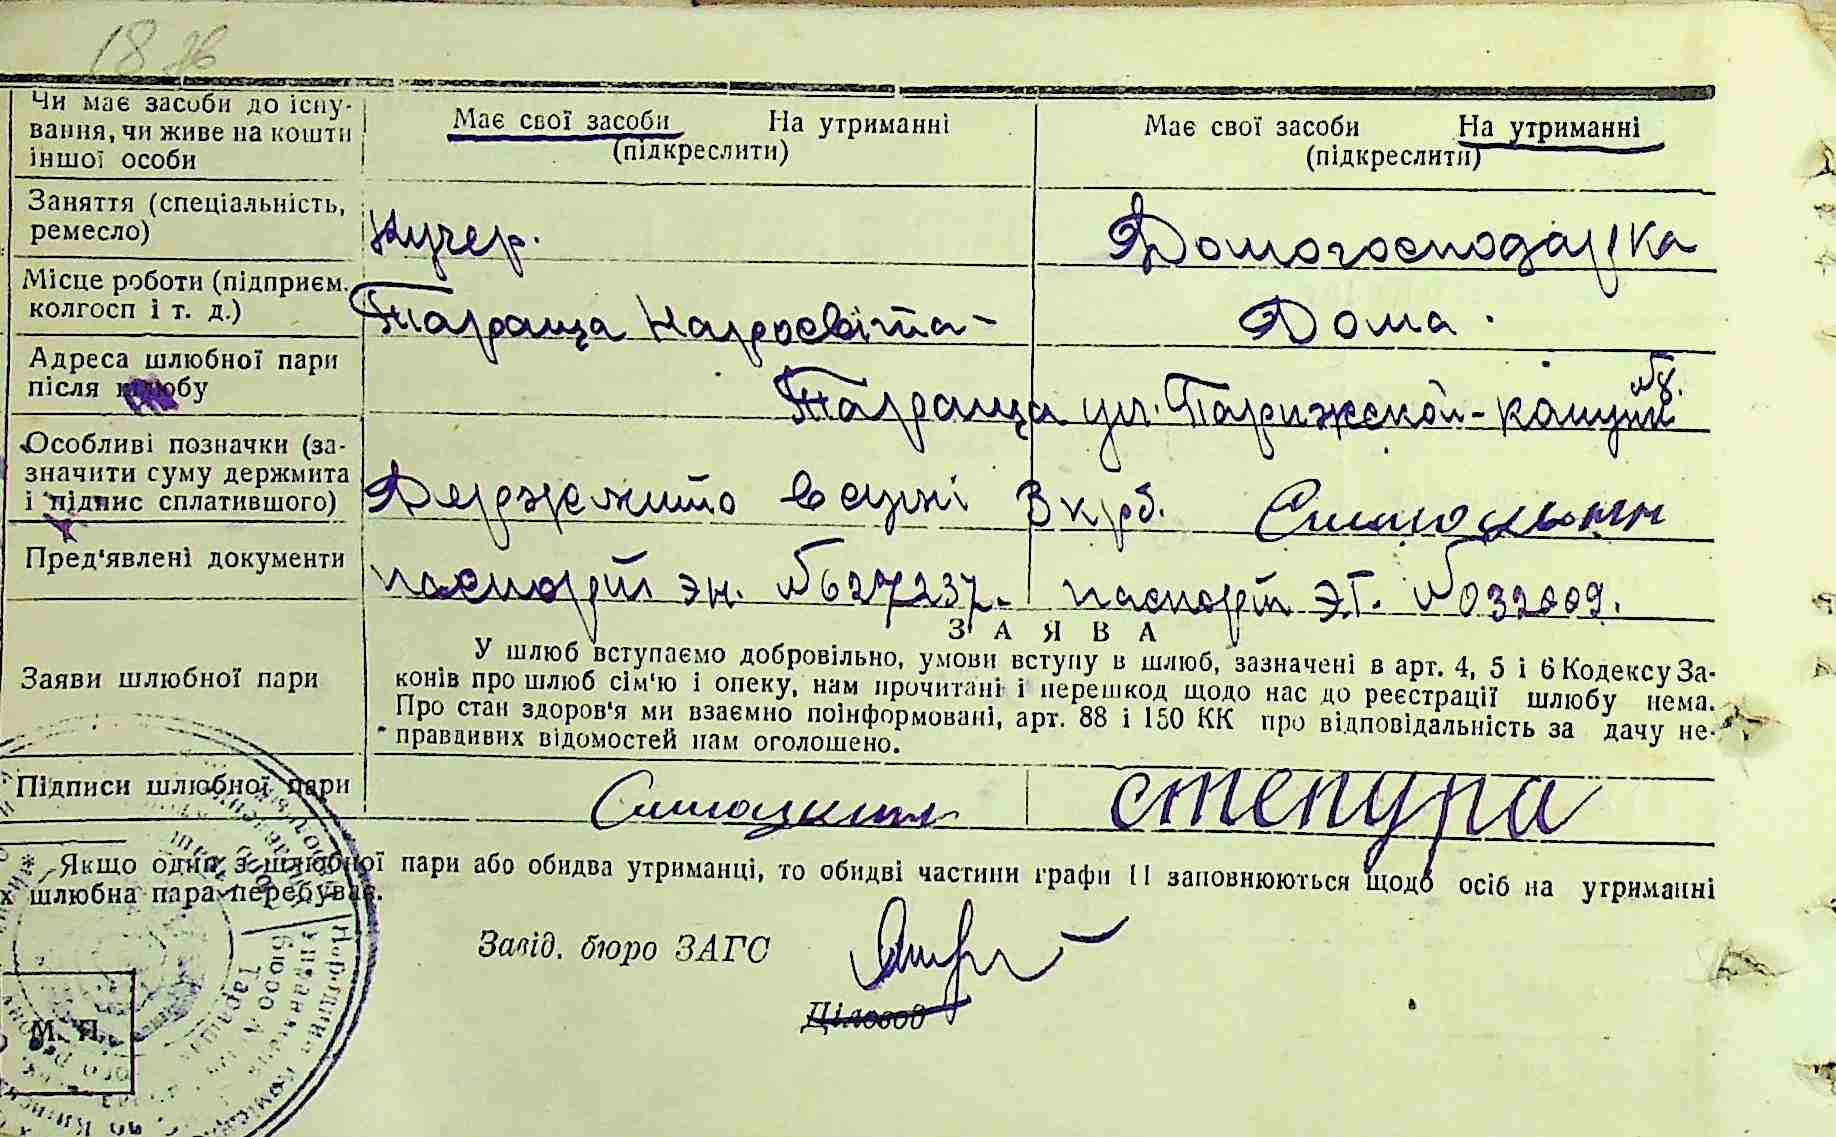 18
Чи має засоби до існу-
вання, чи живе на кошти
іншої особи
Має свої засоби На утриманні
(підкреслити)
Має свої засоби На утриманні
(підкреслити)
Заняття (спеціальність,
ремесло)
Кучер.
Домогосподарка
Місце роботи (підприєм.
колгосп і т. д.)
Тараща Наросвіта-
Дома.
Адреса шлюбної пари
після шлюбу
Тараща ул. Парижской-комуни №8.
Особливі позначки (за-
значити суму держмита
і підпис сплатившого)
Держмито в сумі 3 крб.
Пред'явлені документи
паспорт эн. №627237.
паспорт Э.Г. №032009.
ЗАЯВА
Заяви шлюбної пари
У шлюб вступаємо добровільно, умови вступу в шлюб, зазначені в арт. 4, 5 і 6 Кодексу За-
конів про шлюб сім'ю і опеку, нам прочитані і перешкод щодо нас до реєстрації шлюбу нема.
Про стан здоров'я ми взаємно поінформовані, арт. 88 і 150 КК про відповідальність за дачу не-
правдивих відомостей нам оголошено.
Підписи шлюбної пари
степура
* Якщо один з шлюбної пари або обидва утриманці, то обидві частини графи 11 заповнюються щодо осіб на утриманні
х шлюбна пара перебуває.
Завід. бюро ЗАГС
Діловод
М. П.